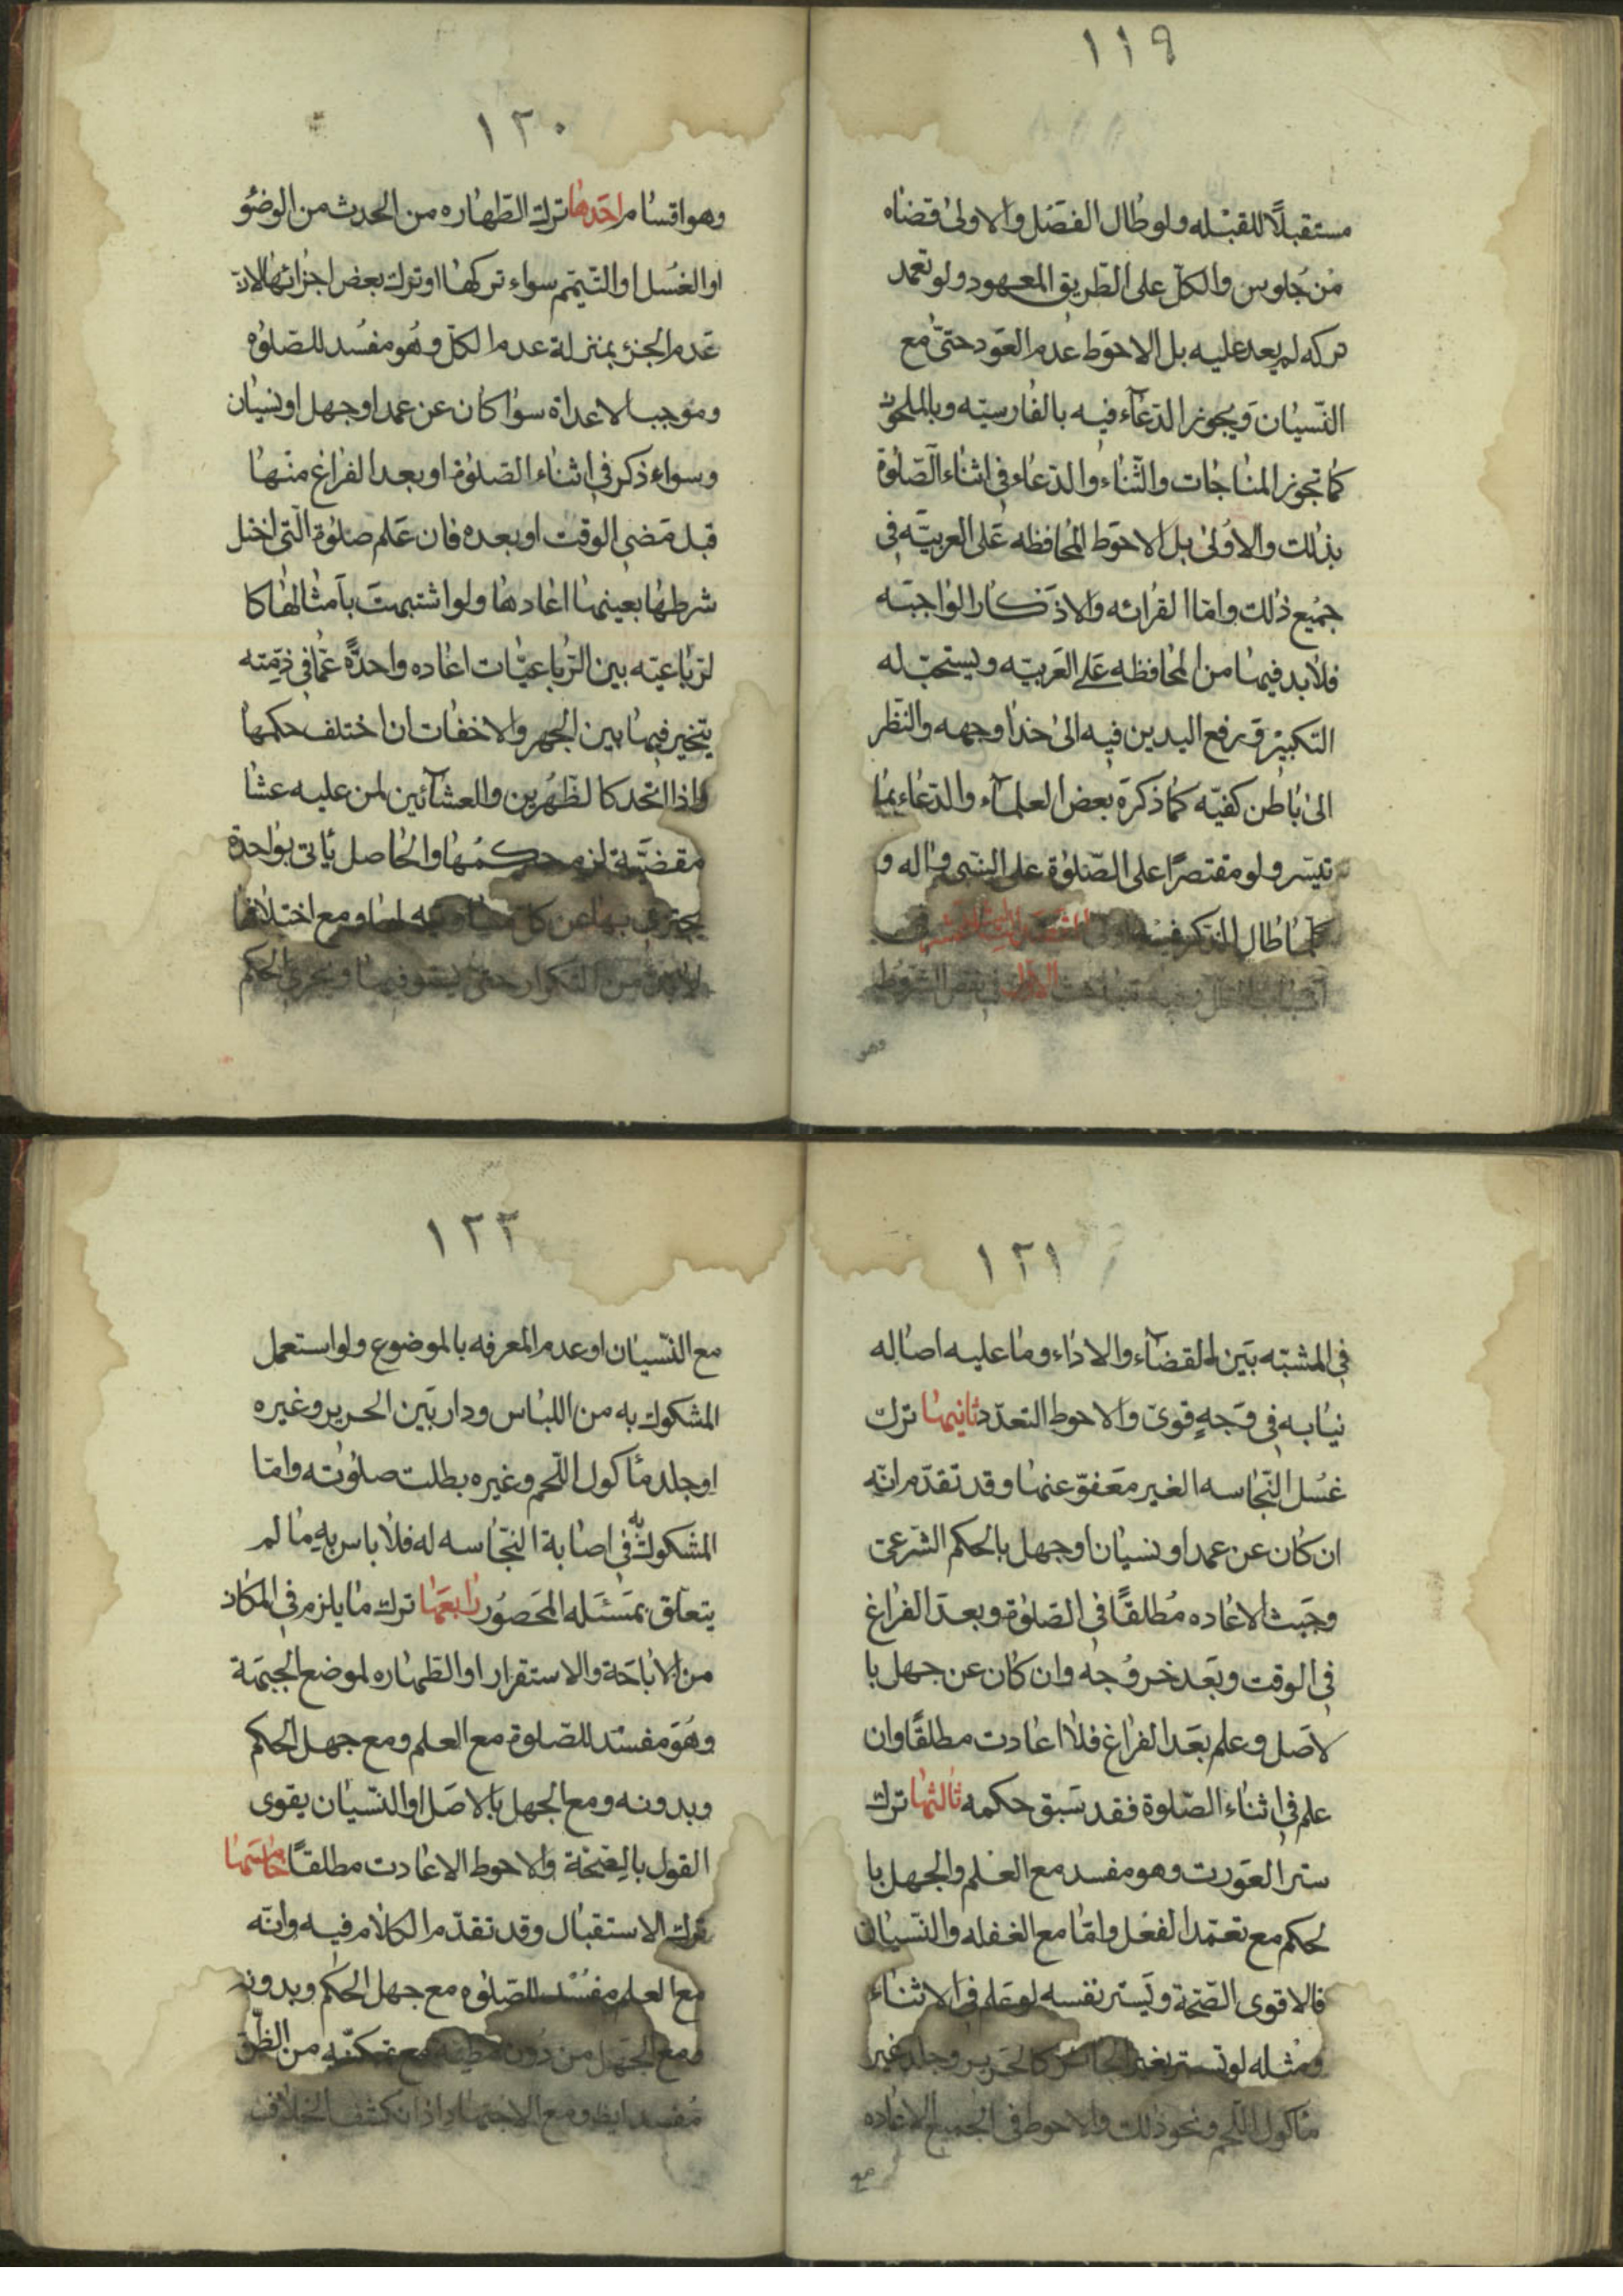 ١١٩
مستقبلاً للقبله ولو طال الفصل والاولى قضاه
من جلوس والكل على الطريق المعهود ولو تعمد
تركه لم يعد عليه بل الاحوط عدم العود حتى مع
النسيان ويجوز الدعاء فيه بالفارسيه وبالملحون
كما تجوز المناجات والثناء والدعاء في اثناء الصلوة
بذلك والاولى بل الاحوط المحافظه على العربيه في
جميع ذلك واما القرائه والاذكار الواجبه
فلابد فيها من المحافظه على العربيه ويستحب له
التكبير ورفع اليدين فيه الى حذا وجهه والنظر
الى باطن كفيه كما ذكره بعض العلماء والدعاء بما
تيسر ولو مقتصرًا على الصلوة على النبي واله و
كلما طال الذكر فيه
وهو
١٢٠
وهو اقسام احدها ترك الطهاره من الحدث من الوضؤ
او الغسل او التيمم سواء تركها او ترك بعض اجزائها لان
عدم الجزء بمنزلة عدم الكل وهو مفسد للصلوه
وموجب الاعداة سوا كان عن عمد او جهل او نسيان
وسواء ذكر في اثناء الصلوة او بعد الفراغ منها
قبل مضي الوقت او بعده فان علم صلوة التي اختل
شرطها بعينها اعادها ولو اشتبهت بامثالها كا
لرباعيه بين الرباعيات اعاده واحدة عما في ذمته
يتخير فيها بين الجهر والاخفات ان اختلف حكمها
واذا اتحد كا لظهرين والعشائين لمن عليه عشا
مقضية لزم حكمها والحاصل ياتي بواحدة
يجتزي بها عن كل ومع اختلافها
لابد من التكرار حتى يستوفيها ويجري الحكم
١٢١
في المشتبه بين القضاء والاداء وما عليه اصاله
نيابه في وجهٍ قوى والاحوط التعدد ثانيها ترك
غسل النجاسه الغير معفوّ عنها وقد تقدم انه
ان كان عن عمد او نسيان او جهل بالحكم الشرعى
وجبت الاعاده مطلقًا في الصلوة وبعد الفراغ
في الوقت وبعد خروجه وان كان عن جهل با
لاصل وعلم بعد الفراغ فلا اعادت مطلقًا وان
علم في اثناء الصلوة فقد سبق حكمه ثالثها ترك
ستر العورت وهو مفسد مع العلم والجهل با
لحكم مع تعمد الفعل واما مع الغفله والنسيان
فالاقوى الصحة ويستر نفسه لو علم في الاثناء
ومثله لو تستر بغير الجائز كالحرير وجلد غير
ماكول اللحم ونحو ذلك والاحوط في الجميع الاعاده
مع
١٢٢
مع النسيان او عدم المعرفه بالموضوع ولو استعمل
المشكوك به من اللباس ودار بين الحرير وغيره
او جلد ماكول اللحم وغيره بطلت صلوته واما
المشكوك به في اصابة النجاسه له فلا باس به ما لم
يتعلق بمسئله المحصور رابعها ترك ما يلزم في المكان
من الاباحة والاستقرار او الطهاره لموضع الجبهة
وهو مفسد للصلوة مع العلم ومع جهل الحكم
وبدونه ومع الجهل بالاصل او النسيان يقوى
القول بالصحة والاحوط الاعادت مطلقًا خامسها
ترك الاستقبال وقد تقدم الكلام فيه وانه
مع العلم مفسد للصلوه مع جهل الحكم وبدونه
ومع الجهل من دون مع تمكنه من الظن
مفسد ايض ومع الاجتهاد اذا انكشف الخلاف